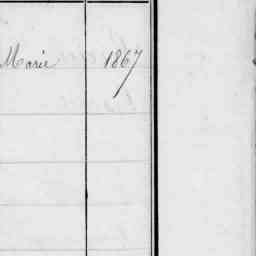 Marie 1867